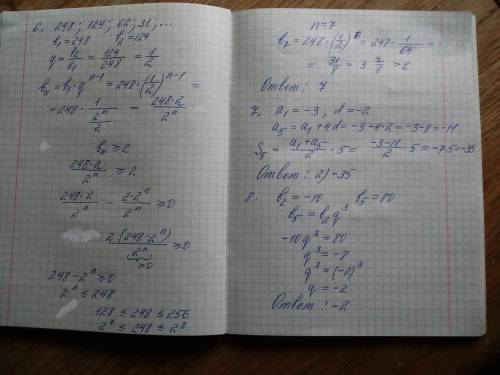 6. 248; 124; 62; 31; ...
b₁ = 248 b₂ = 124
q = b₂/b₁ = 124/248 = 1/2
bₙ = b₁·qⁿ⁻¹ = 248·(1/2)ⁿ⁻¹ =
= 248 · 1/(2ⁿ/2) = 248·2/2ⁿ
bₙ ≥ 2
248·2/2ⁿ ≥ 2
248·2/2ⁿ - 2·2ⁿ/2ⁿ ≥ 0
2(248-2ⁿ)/2ⁿ ≥ 0
>0
248 - 2ⁿ ≥ 0
2ⁿ ≤ 248
128 ≤ 248 ≤ 256
2⁷ ≤ 248 ≤ 2⁸
n = 7
b₇ = 248·(1/2)⁶ = 248 · 1/64 =
= 31/8 = 3 7/8 > 2
Ответ: 7
7. a₁ = -3, d = -2
a₅ = a₁ + 4d = -3-4·2 = -3-8 = -11
S₅ = (a₁+a₅)/2 · 5 = (-3-11)/2 · 5 = -7·5 = -35
Ответ: 2) -35
8. b₂ = -10 b₅ = 80
b₅ = b₂q³
-10q³ = 80
q³ = -8
q³ = (-2)³
q = -2
Ответ: -2